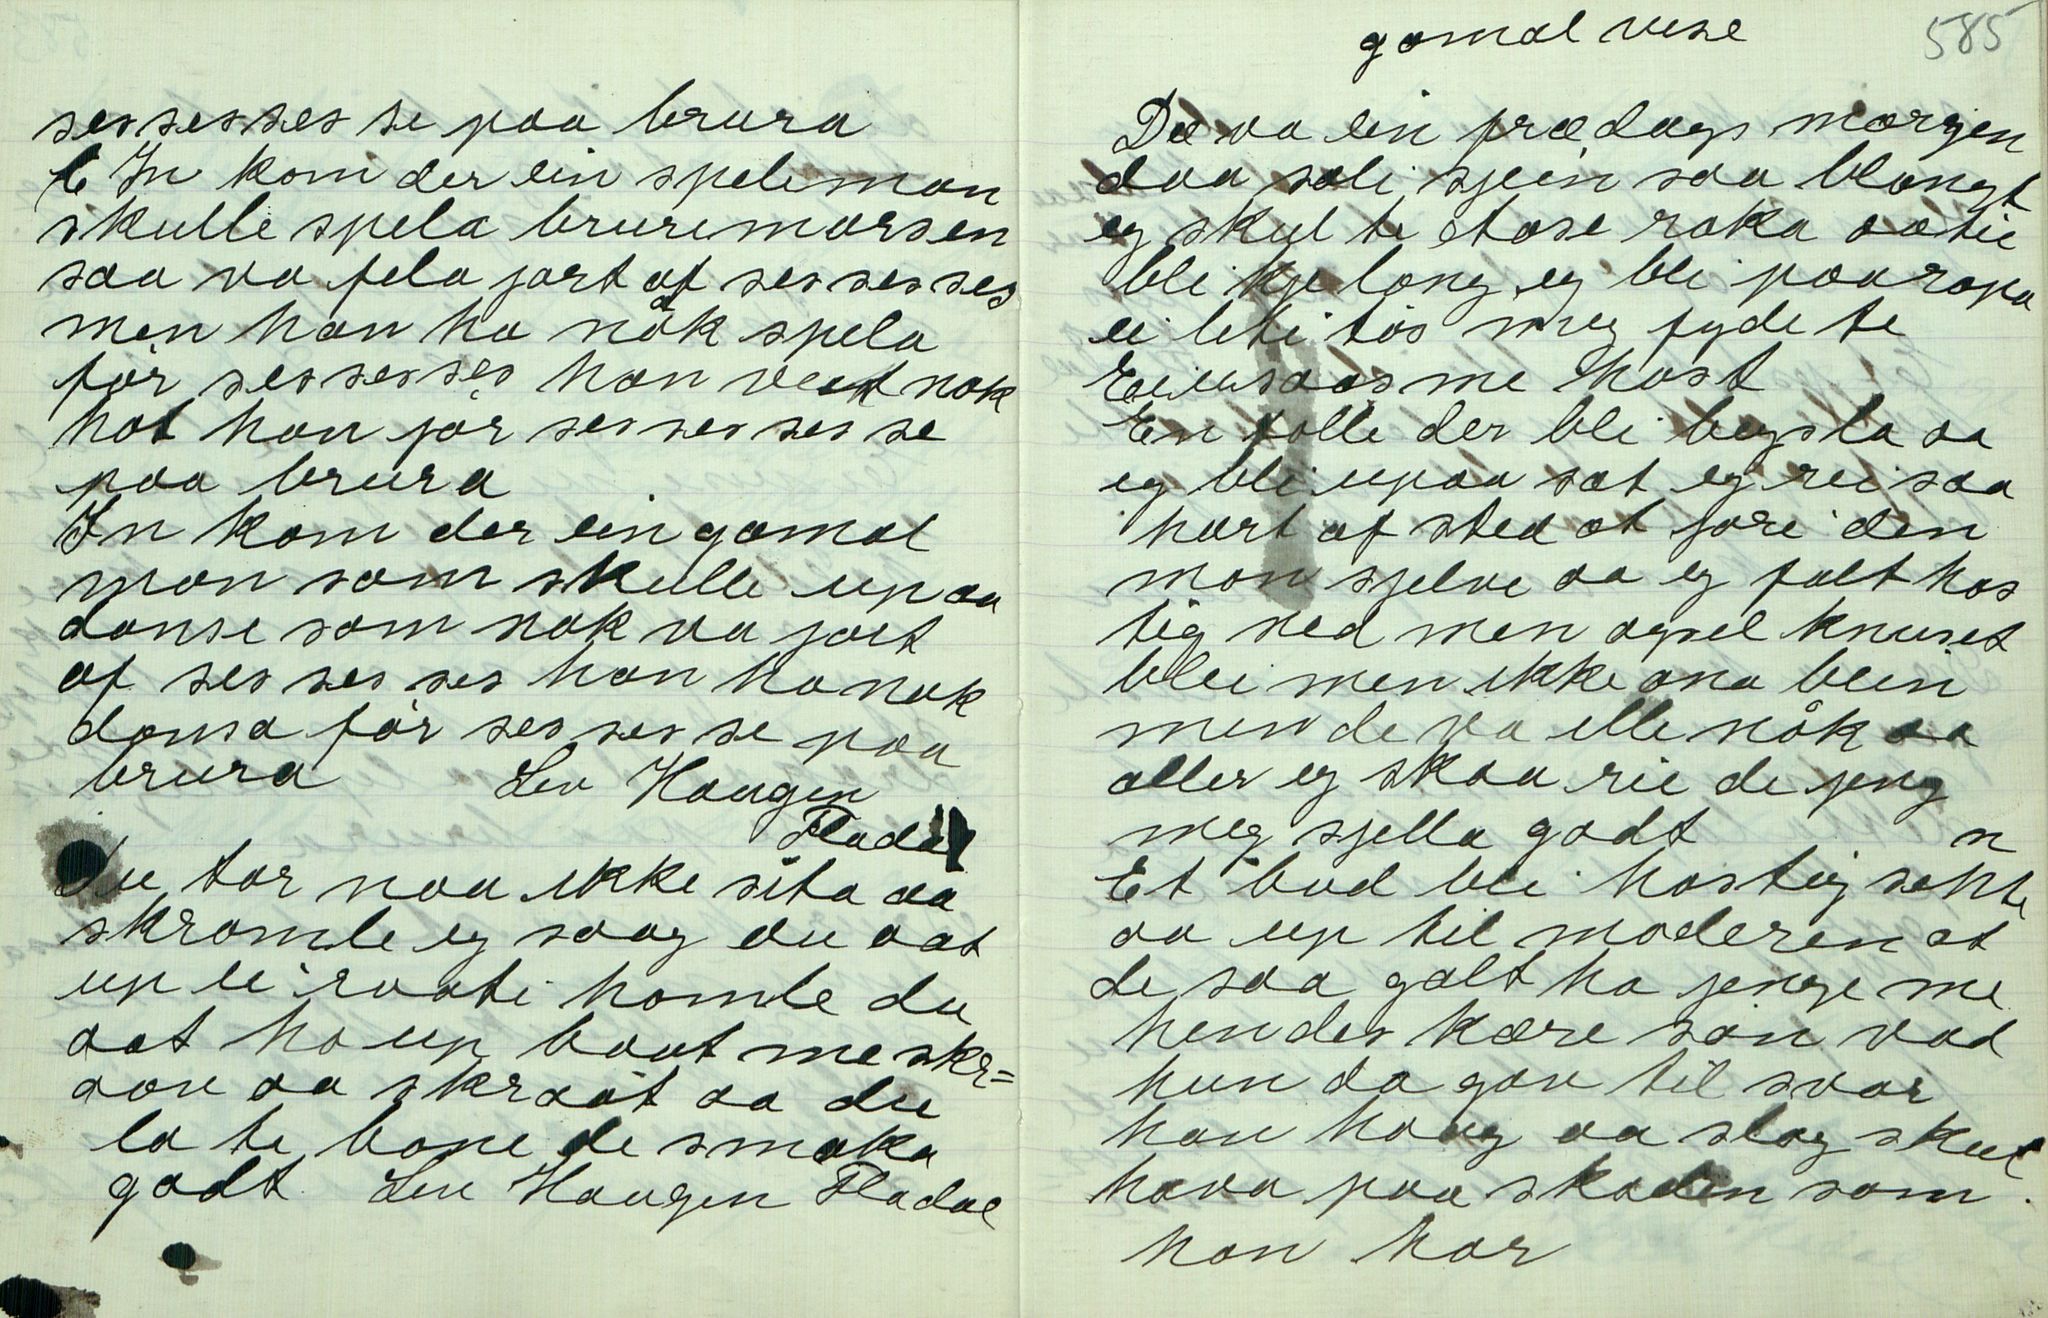 ses ses ses se paa brura
In kom der ein speleman
skulle spela bruremarsen
saa va fela jort af ses ses ses
men han ha nåk spela
før ses ses ses han veit nok
hot han jør ses ses ses se
paa brura
In kom der ein gamal
man som skulle up aa
danse som nok va jort
af ses ses ses han ha nok
dansa før ses ses se paa
brura Liv Haugen
Fladal
Du tar naa ikke sita aa
skromle eg saag du aat
up ei raati homle du
aat ho up baat me skr=
aon aa skraat aa du
la te bone de smaka
godt Liv Haugen Fladal
585
gamal vise
Dæ va ein frædags mærgjen
daa soli sjein saa blangt
eg skul te stase raka aatie
bli kje long eg bli paa ropa
ei liti tøs meg fyde te
me hast
En folle der bli beysla aa
eg bli upaa sat eg rei saa
hart af sted at jore den
man sjelve aa eg falt has
tig ned men ogsel knuset
blei men ikke ana blein
men de va ille nåk aa
aller eg skaa rie de jeng
meg sjella godt
Et bud blei hastig sennte
aa up til moderen at
de saa galt ha jenge me
hendes kære søn vad
hun da gav til svar
han haag aa slag skul
hava paa skaden som
han har